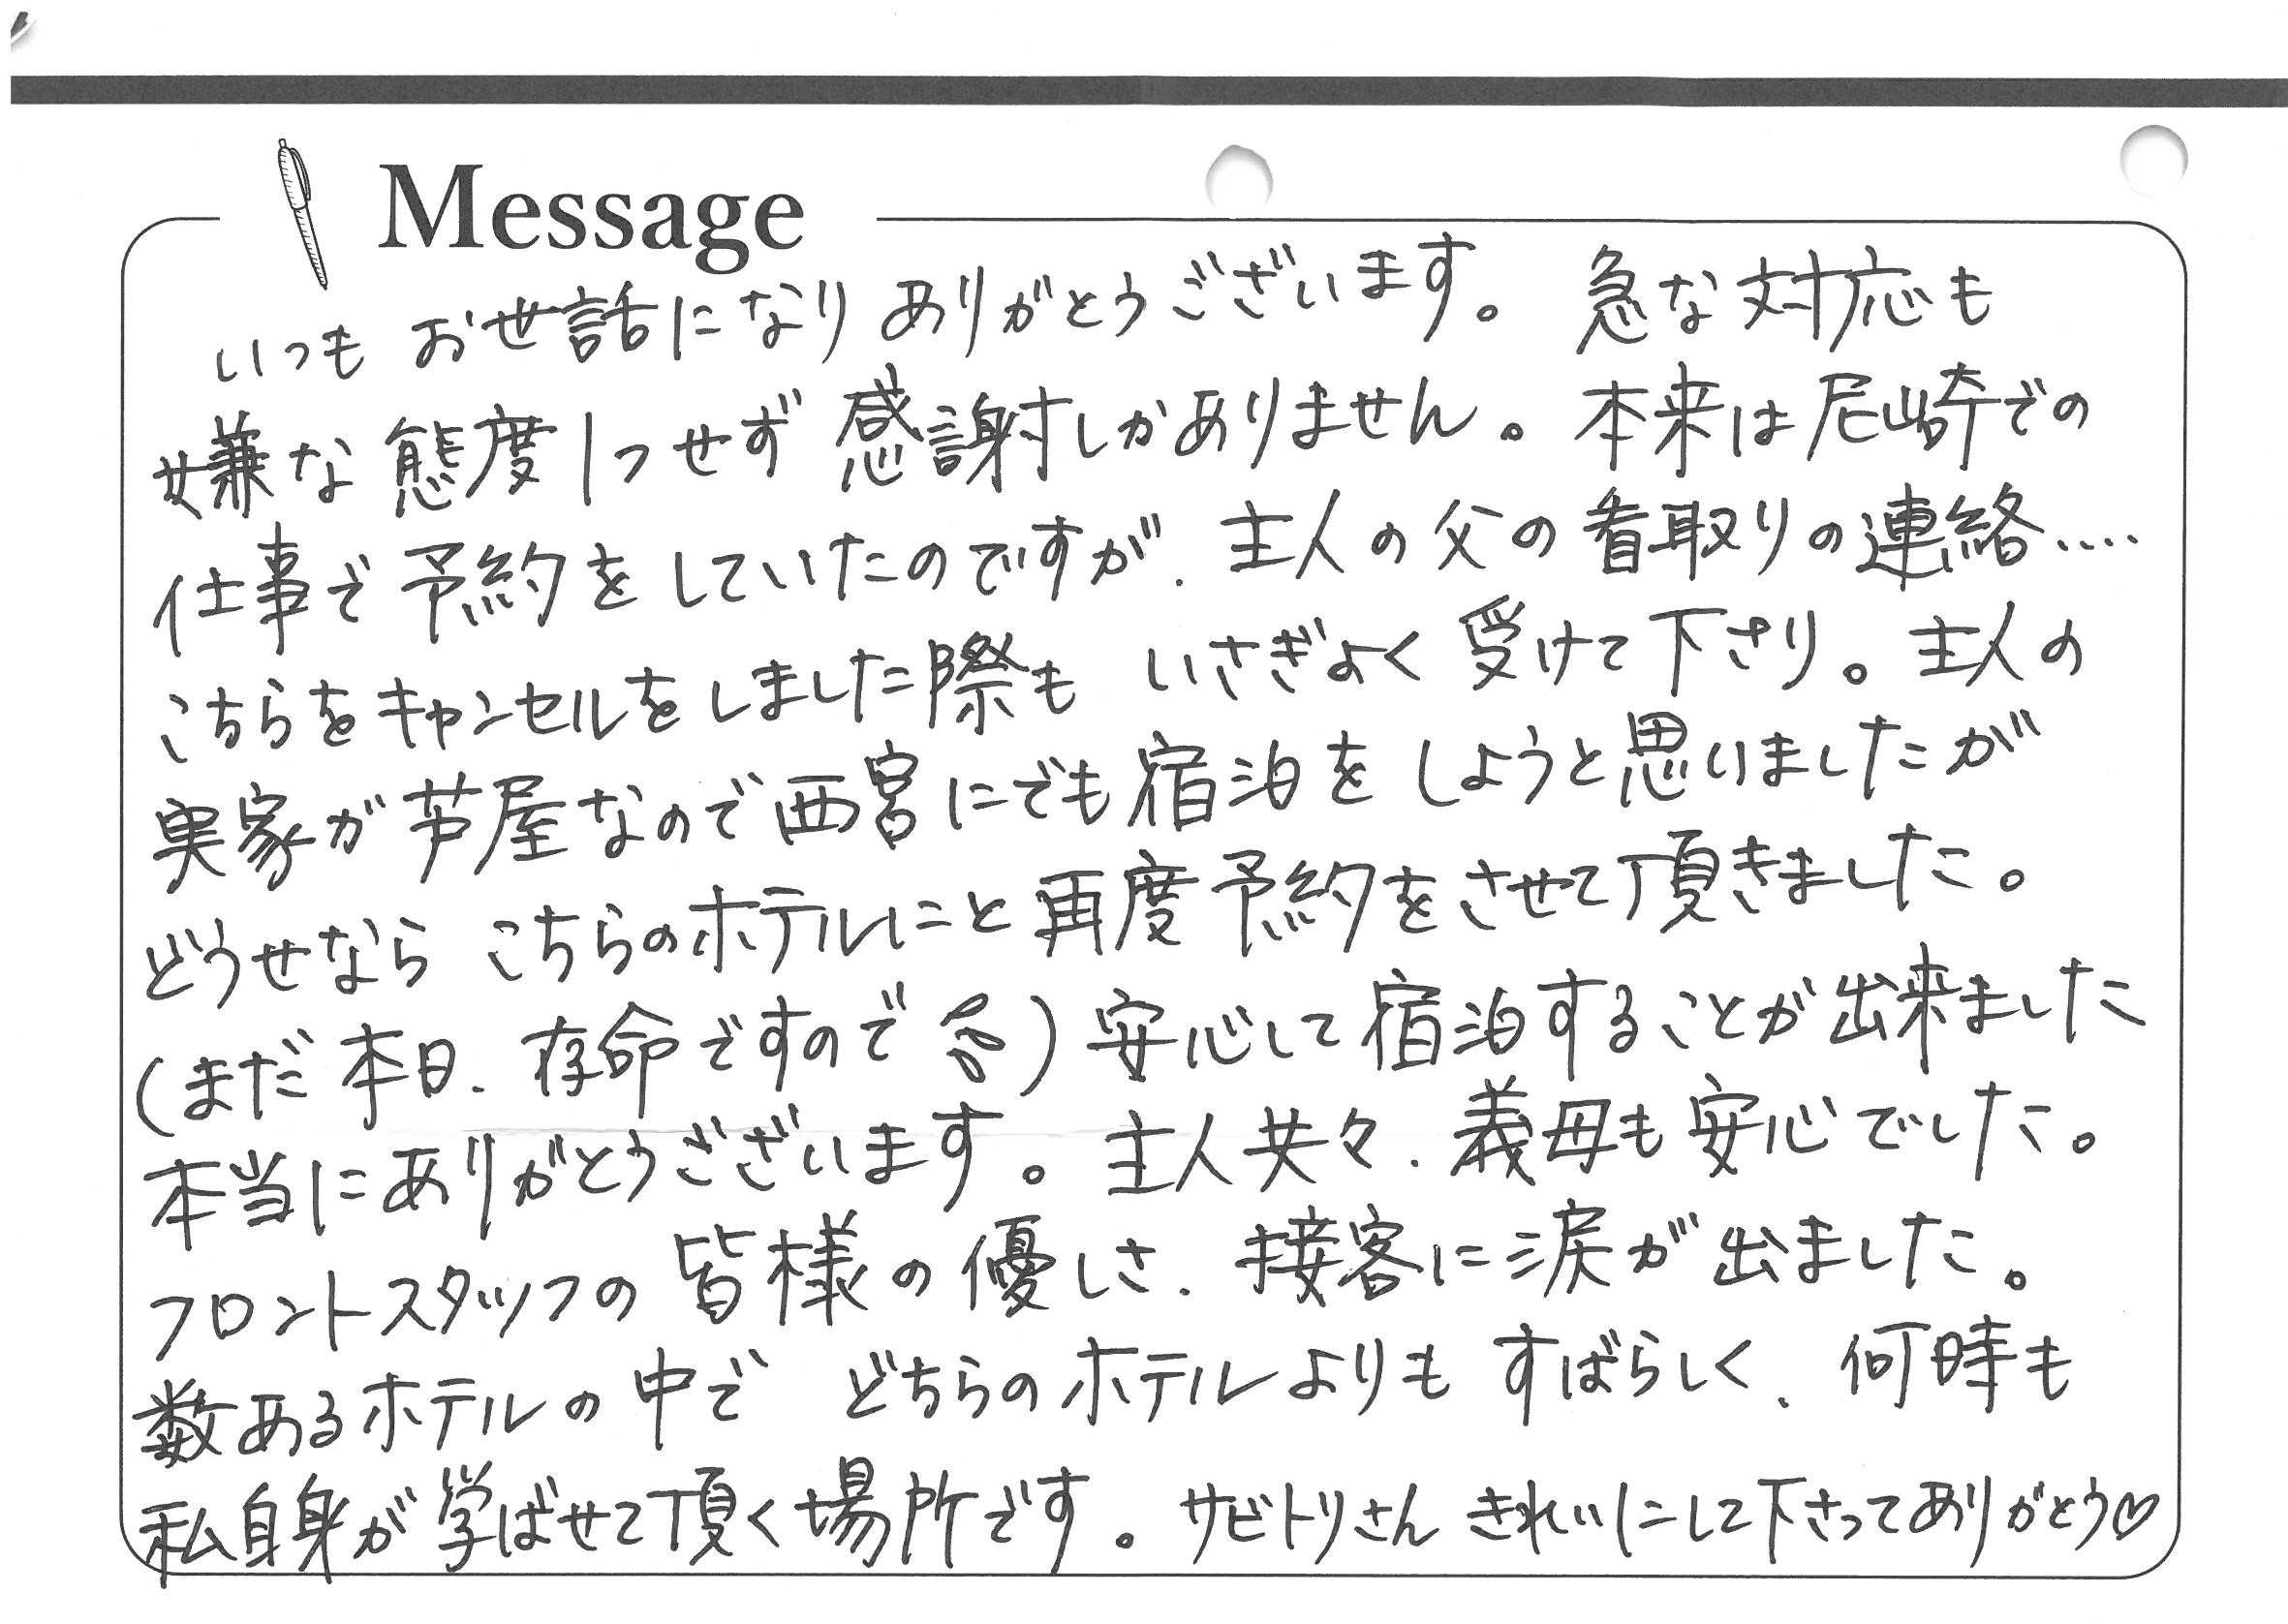 Message
いつも お世話になり ありがとうございます。 急な対応も
嫌な態度1つせず 感謝しかありません。本来は尼崎での
仕事で予約をしていたのですが、主人の父の看取りの連絡‥‥
こちらをキャンセルをしました際も いさぎよく受けて下さり。主人の
実家が芦屋なので西宮にでも宿泊をしようと思いましたが
どうせなら こちらのホテルにと再度予約をさせて頂きました。
(まだ本日、存命ですので )安心して宿泊することが出来ました
本当にありがとうございます。主人共々、義母も安心でした。
フロントスタッフの皆様の優しさ、接客に涙が出ました。
数あるホテルの中で どちらのホテルよりも すばらしく、何時も
私自身が学ばせて頂く場所です。サビトリさん きれいにして下さってありがとう♡